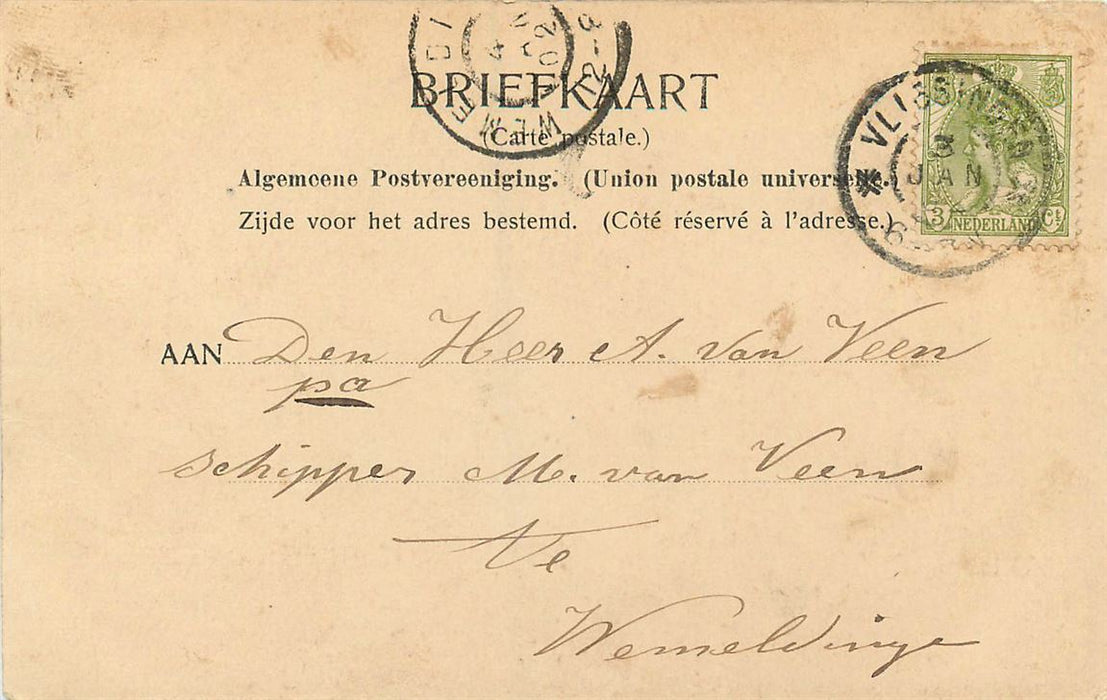 BRIEFKAART
(Carte postale.)
Algemeene Postvereeniging. (Union postale universelle.)
Zijde voor het adres bestemd. (Côté réservé à l'adresse.)
VLISSINGEN
3
JAN
3 NEDERLAND Ct
AAN Den Heer A. van Veen
pa
schipper M. van Veen
te
Wemeldinge